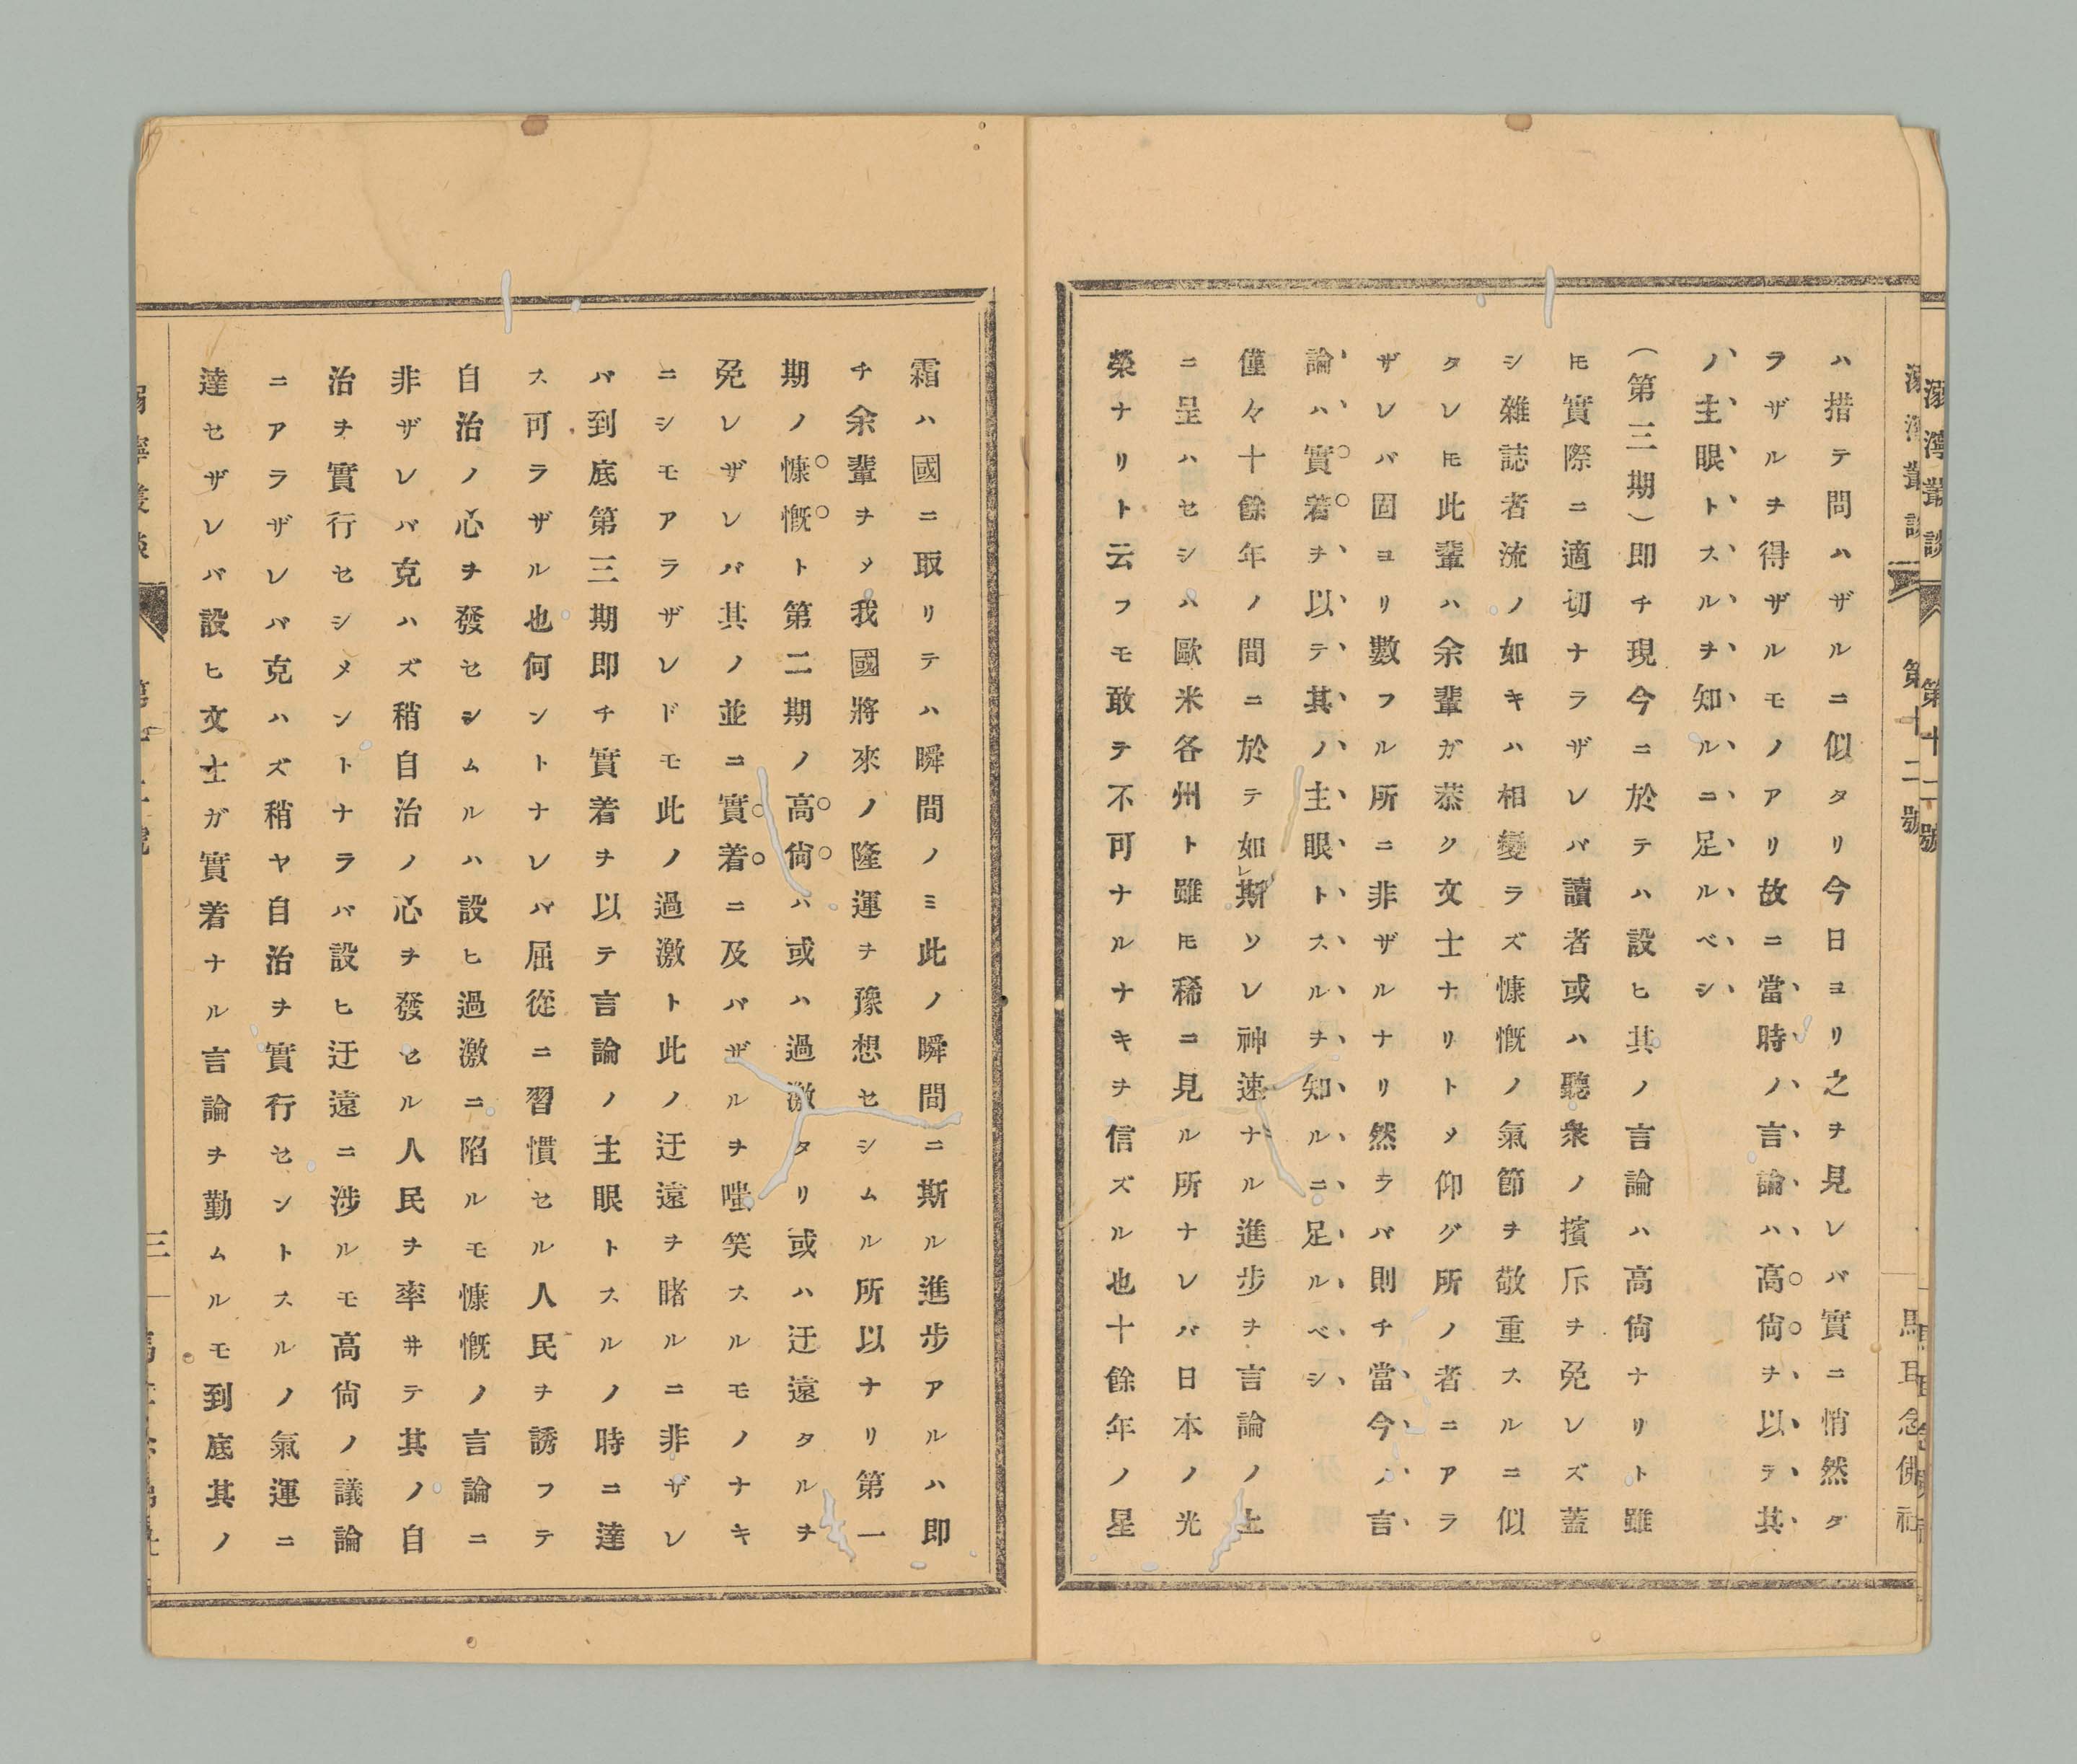 ハ措テ問ハザルニ似タリ今日ヨリ之ヲ見レバ實ニ悄然タ
ラザルヲ得ザルモノアリ故ニ當時ノ言論ハ高尙ヲ以テ其
ノ主眼トスルヲ知ルニ足ルベシ
(第三期)即チ現今ニ於テハ設ヒ其ノ言論ハ高尙ナリト雖
モ實際ニ適切ナラザレバ讀者或ハ聽衆ノ擯斥ヲ免レズ蓋
シ雜誌者流ノ如キハ相變ラズ慷慨ノ氣節ヲ敬重スルニ似
タレ𪜈此輩ハ余輩ガ恭ク文士ナリトメ仰グ所ノ者ニアラ
ザレバ固ヨリ數フル所ニ非ザルナリ然ラバ則チ當今ノ言
論ハ實着ヲ以テ其ノ主眼トスルヲ知ルニ足ルベシ
僅々十餘年ノ間ニ於テ如斯ソレ神速ナル進步ヲ言論ノ上
ニ呈ハセシハ歐米各州ト雖𪜈稀ニ見ル所ナレバ日本ノ光
榮ナリト云フモ敢テ不可ナルナキヲ信ズル也十餘年ノ星
霜ハ國ニ取リテハ瞬間ノミ此ノ瞬間ニ斯ル進步アルハ即
チ余輩ヲメ我國將來ノ隆運ヲ豫想セシムル所以ナリ第一
期ノ慷慨ト第二期ノ高尙ハ或ハ過激タリ或ハ迂遠タルヲ
免レザレバ其ノ並ニ實着ニ及バザルヲ嗤笑スルモノナキ
ニシモアラザレドモ此ノ過激ト此ノ迂遠ヲ睹ルニ非ザレ
バ到底第三期即チ實着ヲ以テ言論ノ主眼トスルノ時ニ達
ス可ラザル也何ントナレバ屈從ニ習慣セル人民ヲ誘フテ
自治ノ心ヲ發セシムルハ設ヒ過激ニ陷ルモ慷慨ノ言論ニ
非ザレバ克ハズ稍自治ノ心ヲ發セル人民ヲ率井テ其ノ自
治ヲ實行セシメントナラバ設ヒ迂遠ニ涉ルモ高尙ノ議論
ニアラザレバ克ハズ稍ヤ自治ヲ實行セントスルノ氣運ニ
達セザレバ設ヒ文士ガ實着ナル言論ヲ勤ムルモ到底其ノ
三